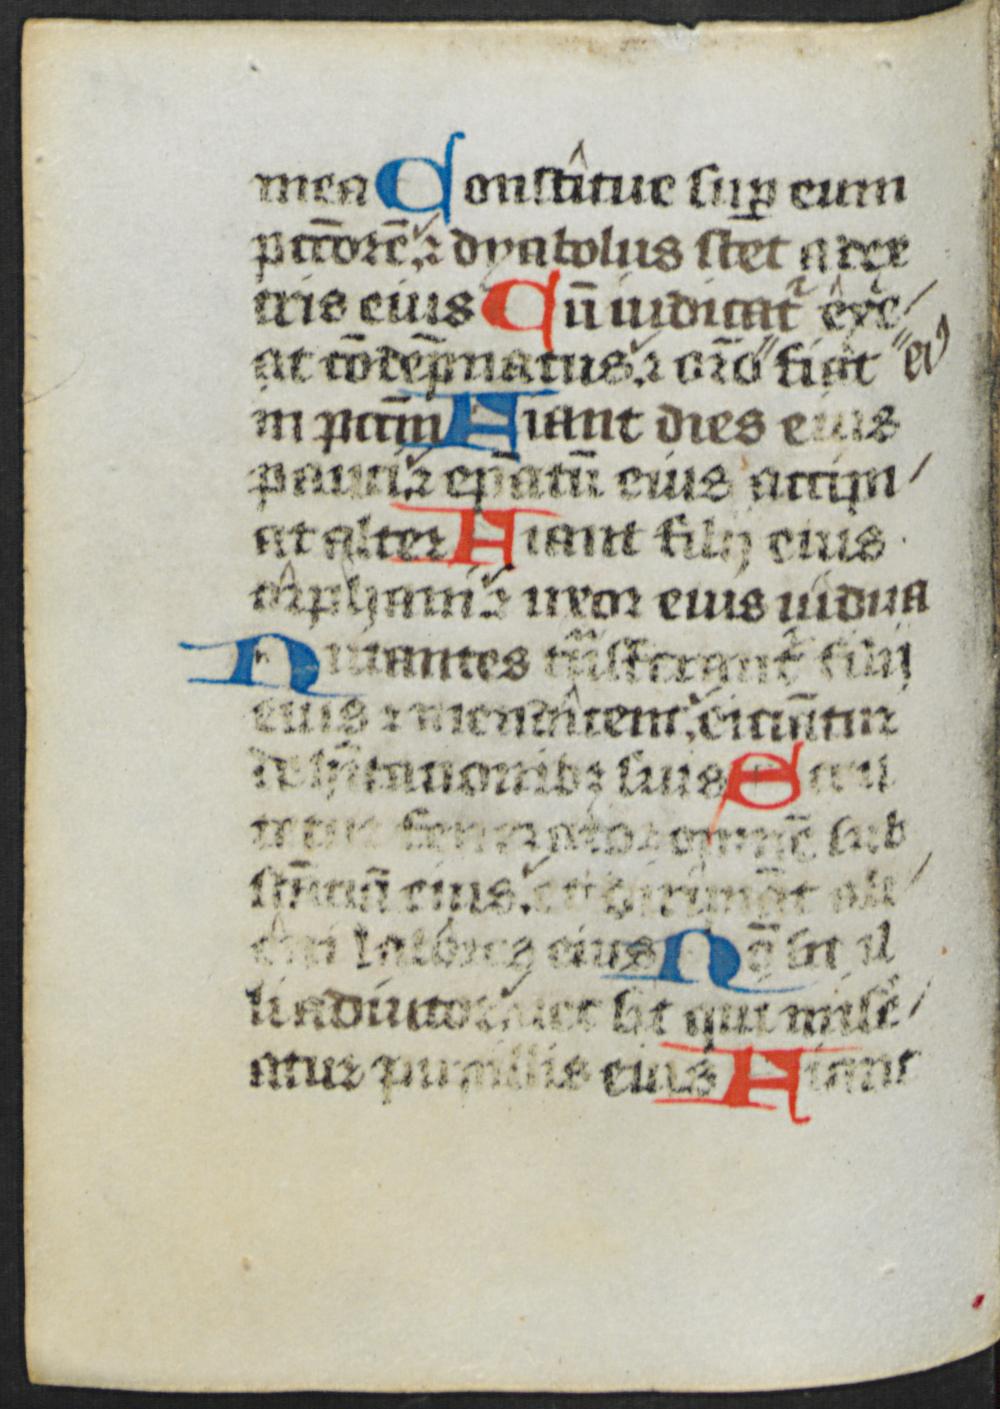 mea Constitue sup eum
pctorē ⁊ dyabolus stet a dex
tris eius Cū iudicat exe
at cōdēpnatus ⁊ orō fiat ei
in pctm Fiant dies eius
pauci ⁊ epatū eius accipi
at alter Fiant filij eius
orphani ⁊ uxor eius uidua
Nutantes trāsferant filij
eius ⁊ mendicent eiciantur
de hitationib⁊ suis Scru
tetur fenerator omnē sub
stāciā eius et diripiāt ali
eni labores eius Nō sit il
li adiutor nec sit qui mise
atur pupillis eius Fiant